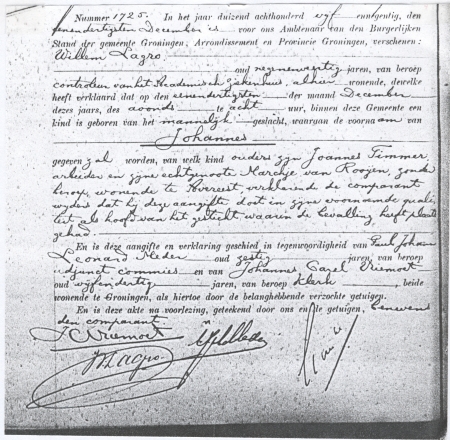 Nummer 1725. In het jaar duizend achthonderd vyf en negentig, den
eenendertigsten December is voor ons Ambtenaar van den Burgerlijken
Stand der gemeente Groningen, Arrondissement en Provincie Groningen, verschenen:
Willem Lagro
oud negenenveertig jaren, van beroep
controleur van het Academisch Ziekenhuis, alhier wonende, dewelke
heeft verklaard dat op den eenendertigsten der maand December
dezes jaars, des avonds te acht uur, binnen deze Gemeente een
kind is geboren van het mannelyk geslacht, waaraan de voornaam van
Johannes
gegeven zal worden, van welk kind ouders zyn Joannes Timmer,
arbeider en zyne echtgenoote Marchje van Rooyen, zonder
beroep, wonende te Avereest, verklarende de comparant
wyders dat hy deze aangifte doet in zyne voornoemde quali-
teit als hoofd van het gesticht waarin de bevalling heeft plaats
gehad.
En is deze aangifte en verklaring geschied in tegenwoordigheid van Paul Johan
Leonard oud zestig jaren, van beroep
adjunct commies en van Johannes Carel Vriemoet
oud vyfendertig jaren, van beroep klerk, beide
wonende te Groningen, als hiertoe door de belanghebbende verzochte getuigen.
En is deze akte na voorlezing, geteekend door ons en de getuigen, benevens
den comparant
JC Vriemoet
W Lagro